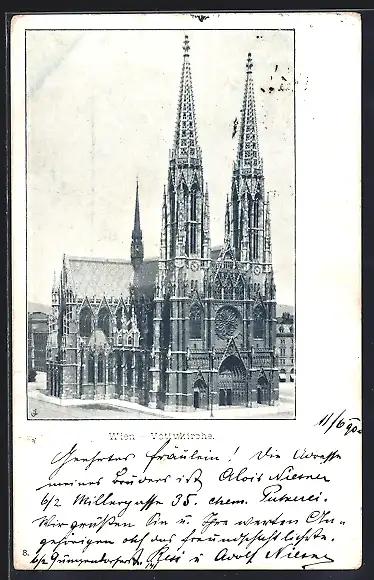 Wien - Votivkirche.
11/6 900
Geehrtes Fräulein! Die Adresse
meines Bruders ist Alois Niesner
6/2 Millergasse 35. chem. Putzerei.
Wir grüßen Sie u. Ihre werten An-
gehörigen auf das freundschaftlichste.
8. 6/2 Gumpendorferstr. u Adolf Niesner